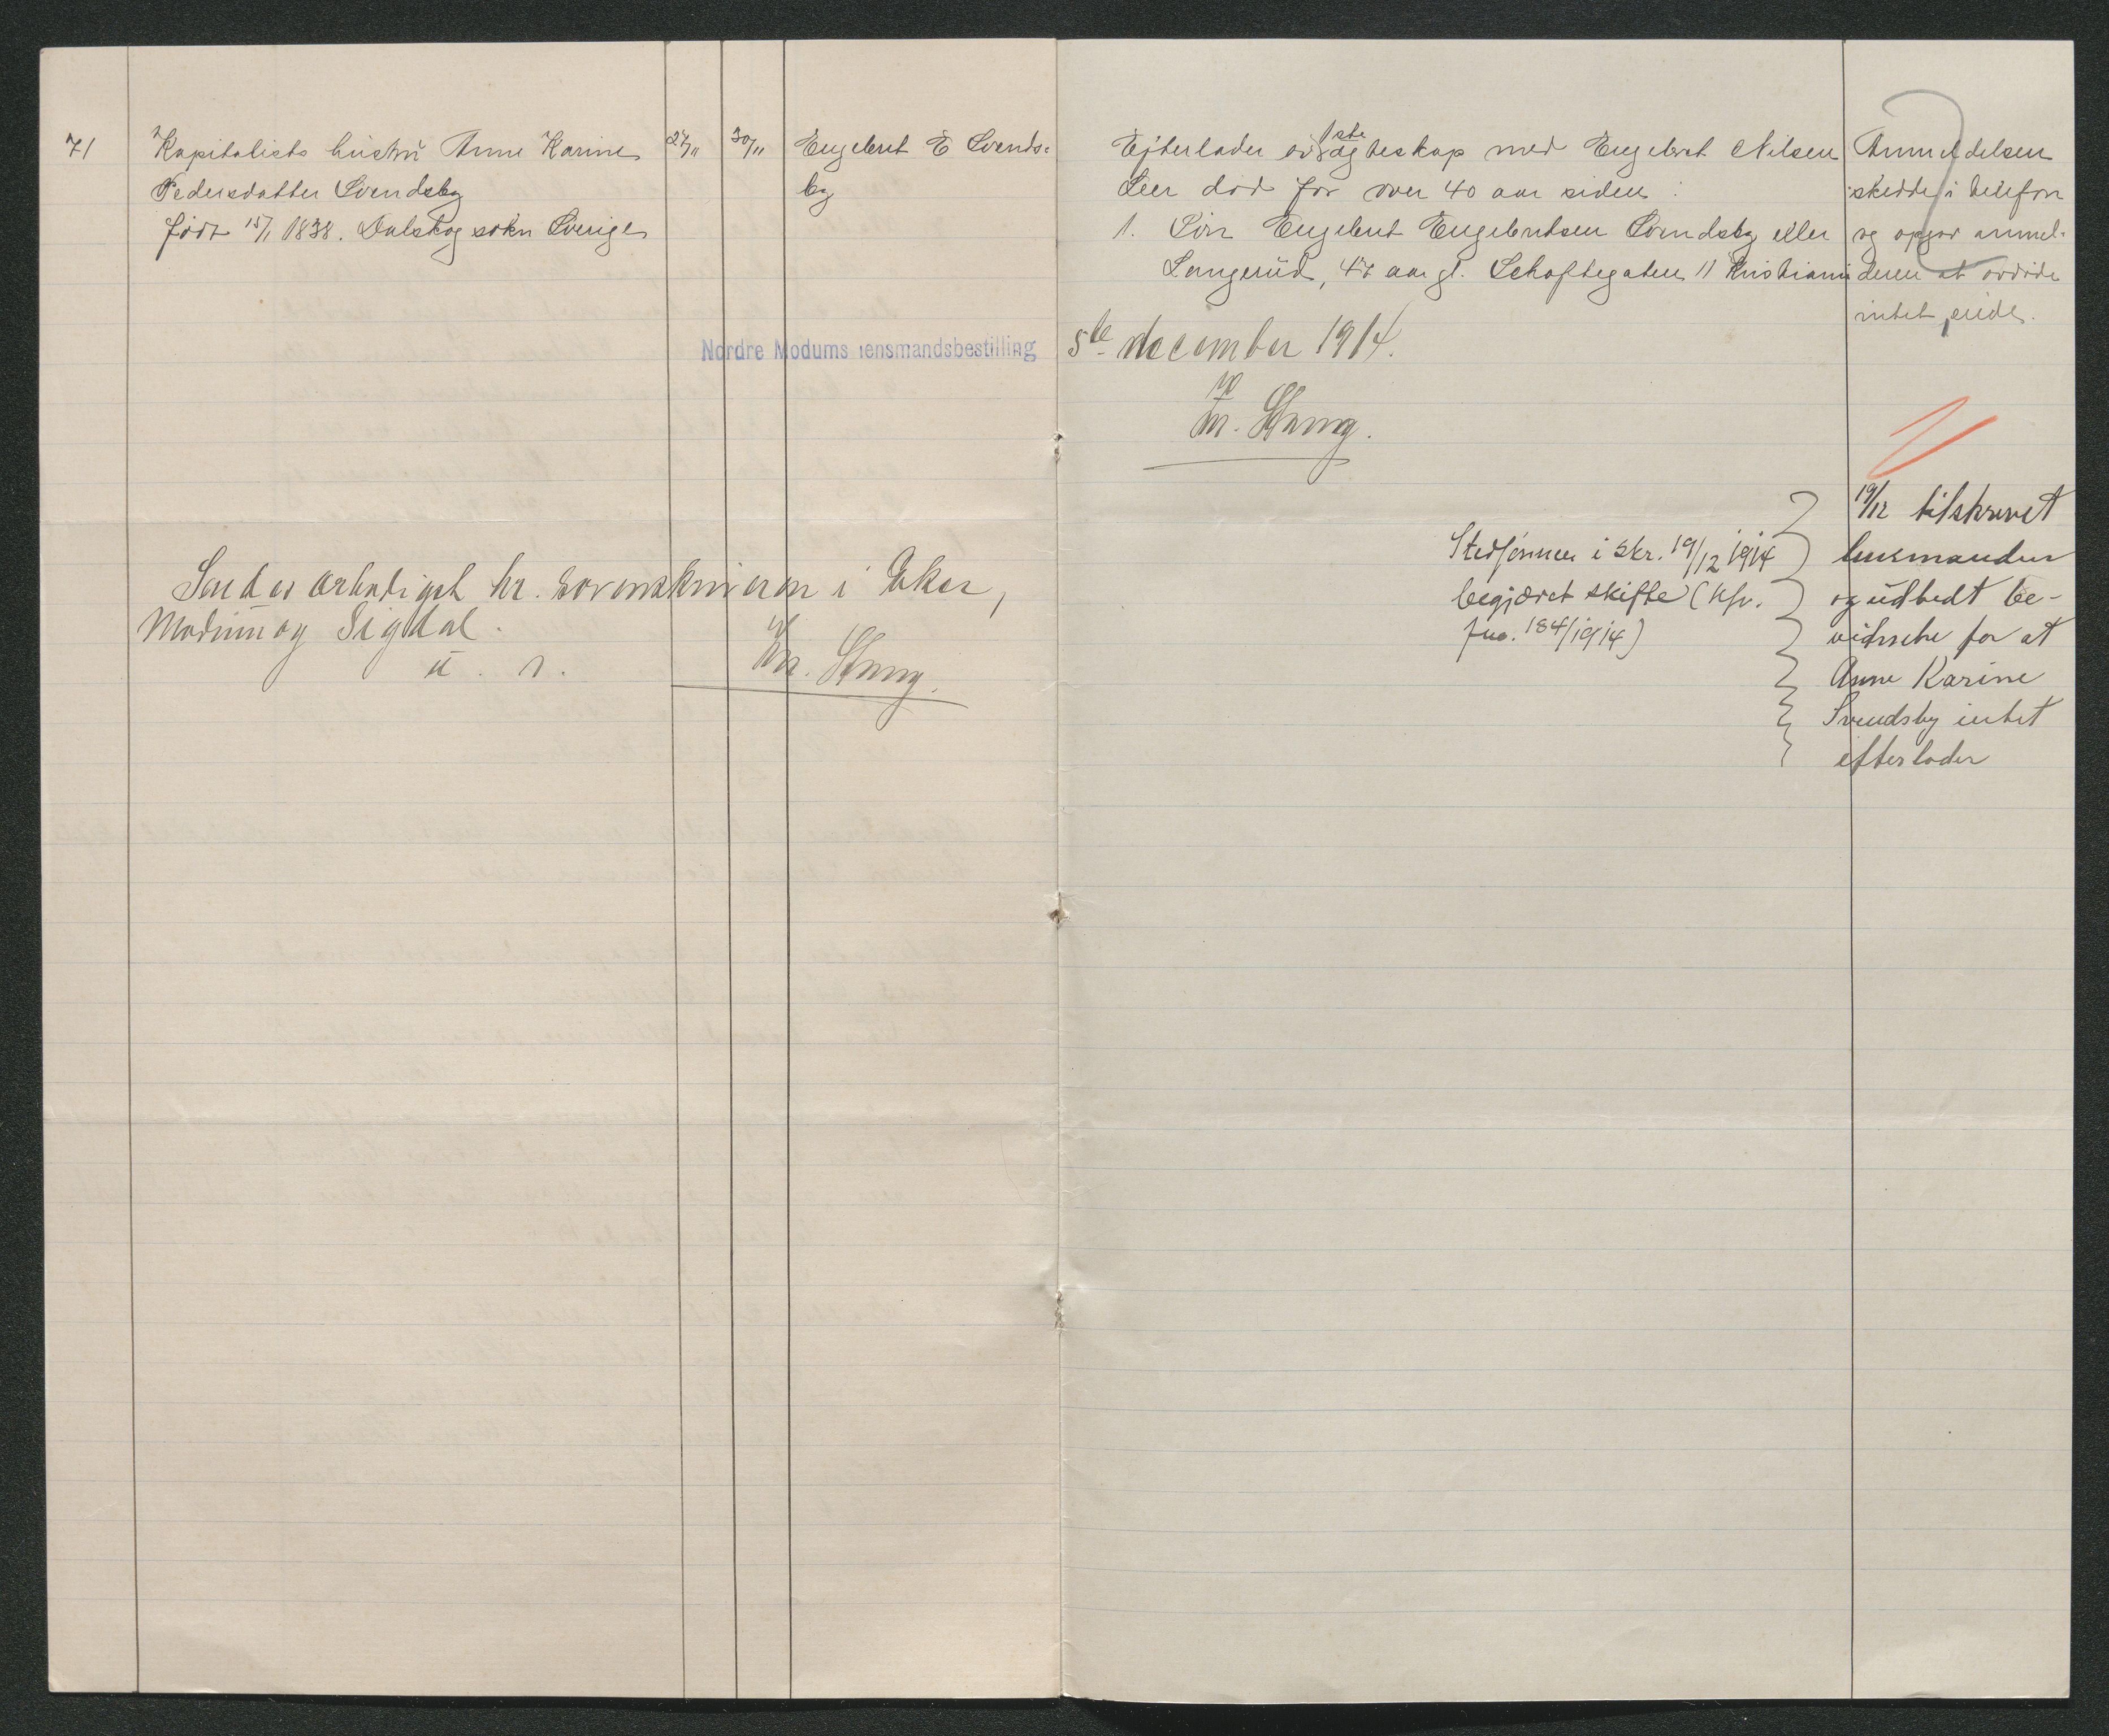 71
Kapitalists hustru Anne Karine
Pedersdatter Svendsby
født 15/1 1838. Dalskog sokn Sverige
27/11
30/11
Engebret E Svends-
by
Efterlader av 1ste egteskap med Engebret Nilsen
Leer død for over 40 aar siden:
1. Søn Engebret Engebretsen Svendsby eller
Langerud, 47 aar gl. Schaftegaten 11 Kristiania
Anmeldelsen
skedde i telefon
og opgav anmel-
deren at avdøde
intet eiide.
Nordre Modums lensmandsbestilling
5te december 1914.
M. Stang.
Sendes ærbødigst hr. sorenskriveren i Eker,
Modum og Sigdal.
u. r.
M. Stang.
Stedsønnen i skr. 19/12 1914
begjæret skifte (kfr.
jno. 184/1914)
19/12 tilskrevet
lensmanden
og udbedt be-
vidnelse for at
Anne Karine
Svendsby intet
efterlader